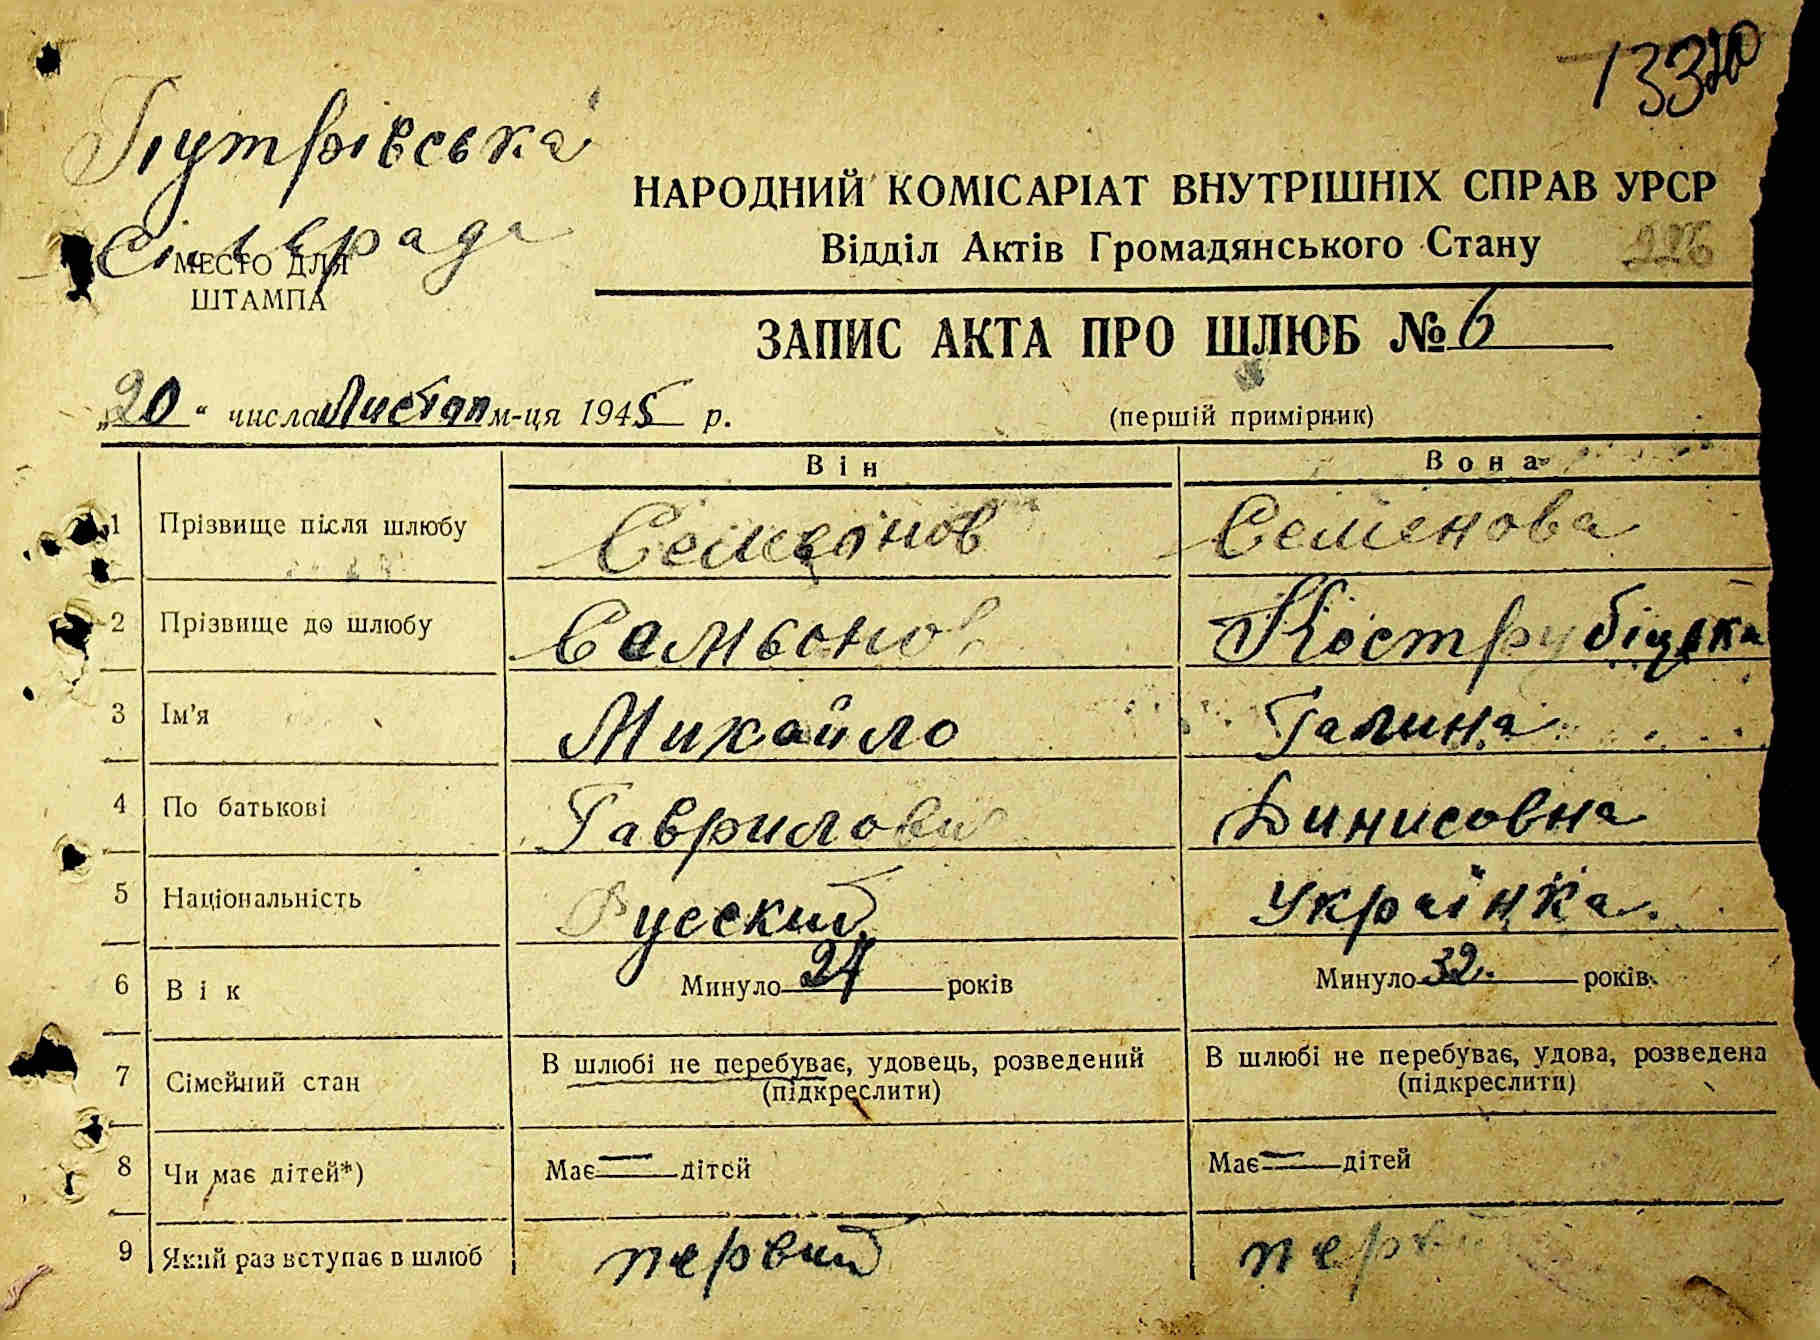 13320
Путрівська
сільрада
МЕСТО ДЛЯ
ШТАМПА
НАРОДНИЙ КОМІСАРІАТ ВНУТРІШНІХ СПРАВ УРСР
Відділ Актів Громадянського Стану 226
ЗАПИС АКТА ПРО ШЛЮБ № 6
„20“ числа Листоп м-ця 1945 р. (першій примірник)
Він Вона
1 Прізвище після шлюбу Семенова
2 Прізвище до шлюбу Семьонов Кострубіцька
3 Ім'я Михайло Галина
4 По батькові Гаврилович Динисовна
5 Національність Русский Українка.
6 Вік Минуло 27 років Минуло 32. років
7 Сімейний стан В шлюбі не перебуває, удовець, розведений (підкреслити) В шлюбі не перебуває, удова, розведена (підкреслити)
8 Чи має дітей*) Має — дітей Має — дітей
9 Який раз вступає в шлюб первий первий